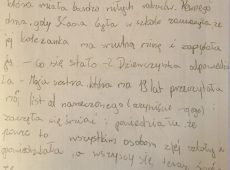 która miała bardzo miłych rodziców. Pewnego
dnia, gdy Kasia była w szkole zauważyła, że
jej koleżanka ma smutną minę i zapytała
ją - co się stało - Dziewczynka odpowiedzia
ła - Moja siostra która ma 13 lat przeczytała
mój list od
zaczęła się śmiać i powiedziała że
powie to wszystkim osobom z jej szkoły i
powiedziała, a wszyscy się teraz